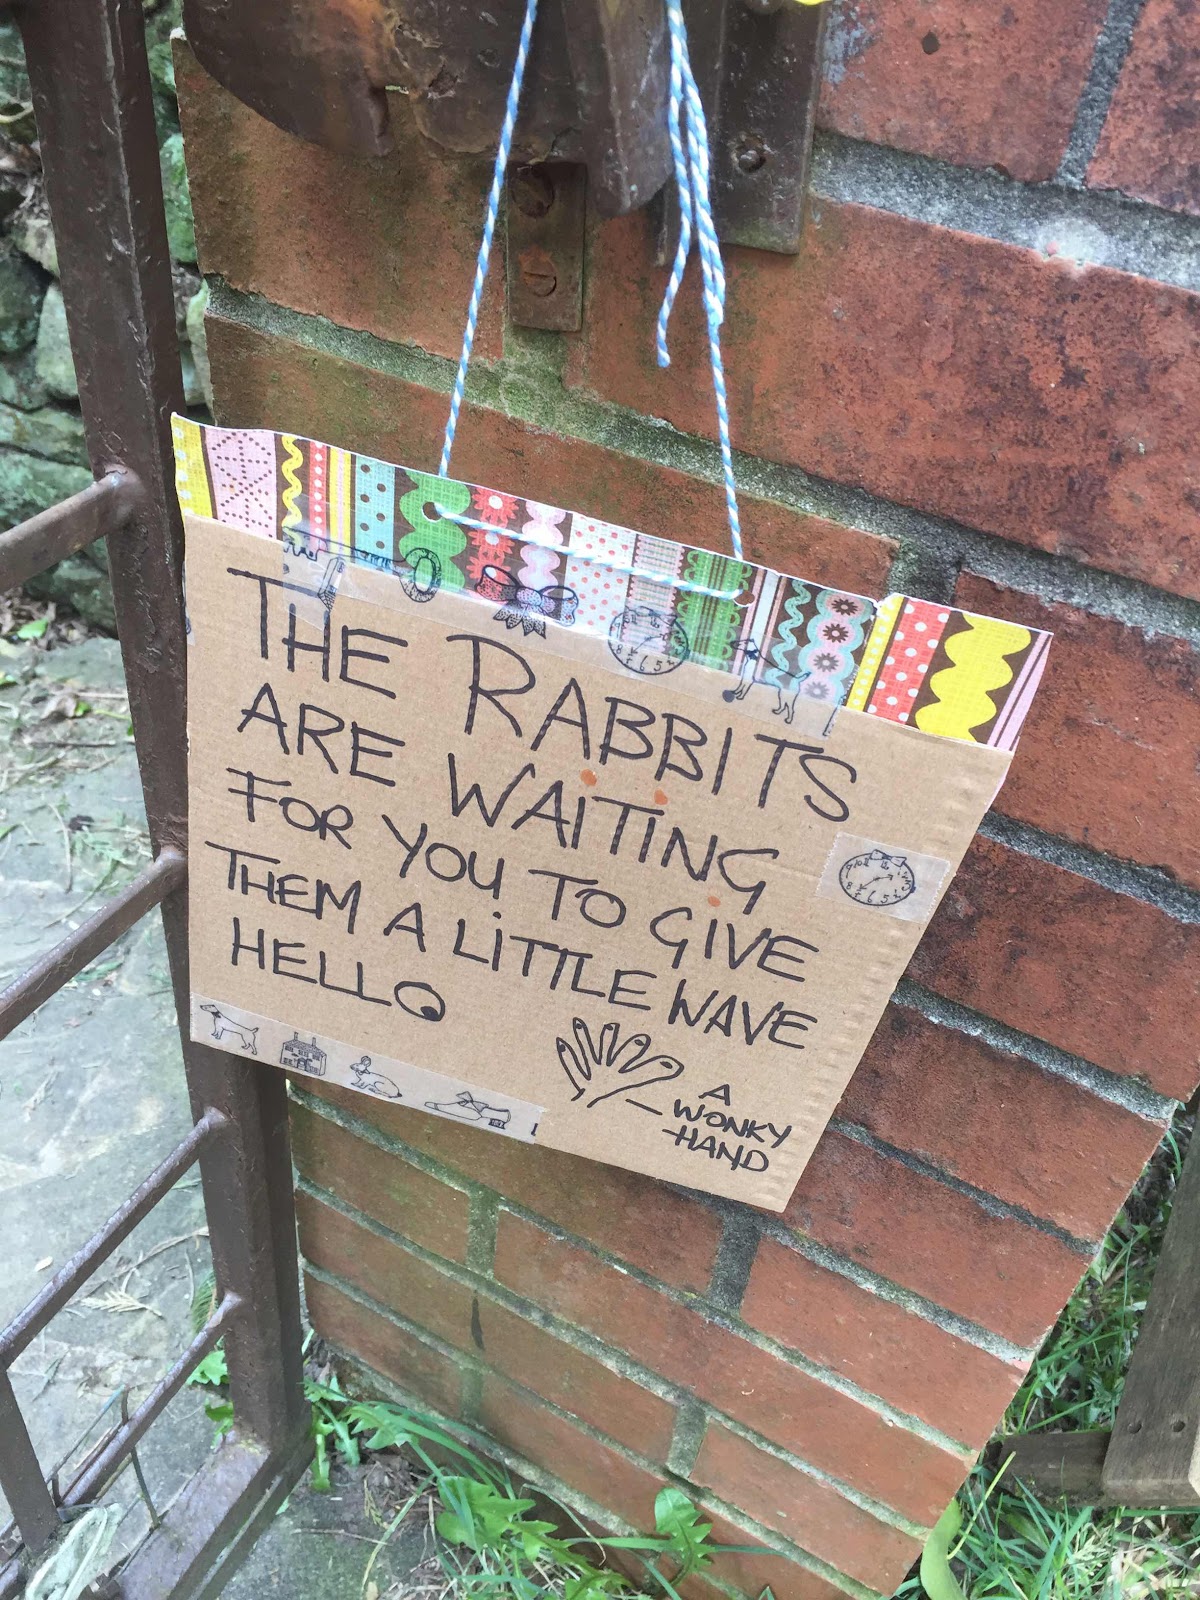 THE RABBITS
ARE WAITING
FOR YOU TO GIVE
THEM A LITTLE WAVE
HELLO
A
WONKY
HAND